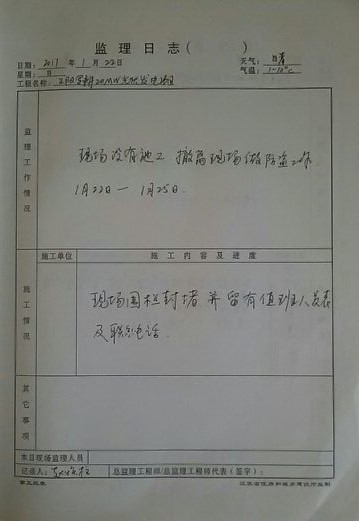 监理日志( )
日期: 2017 年 1 月 22日 天气: 晴
星期: 日 气温:
工程名称: 20MW光伏发电项目
监理工作情况
现场没有施工 撤离现场做防盗工作
1月22日 — 1月25日.
施工单位 施工内容及进度
施工情况
现场围栏封堵 并留有值班人员表
及联系电话.
其它事项
本日现场监理人员
记录人: 总监理工程师/总监理工程师代表(签字):
江苏省住房和城乡建设厅监制